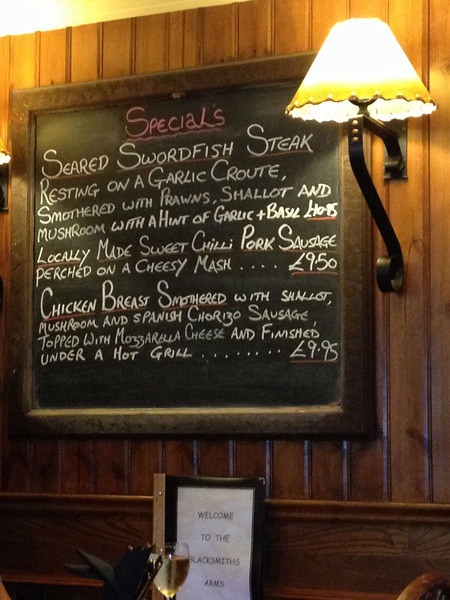 SPECIAL'S
SEARED SWORDFISH STEAK
RESTING ON A GARLIC CROUTE,
SMOTHERED WITH PRAWNS, SHALLOT AND
MUSHROOM WITH A HINT OF GARLIC + BASIL £10.95
LOCALLY MADE SWEET CHILLI PORK SAUSAGE
PERCHED ON A CHEESY MASH .... £9.50
CHICKEN BREAST SMOTHERED WITH SHALLOT,
MUSHROOM AND SPANISH CHORIZO SAUSAGE,
TOPPED WITH MOZZARELLA CHEESE AND FINISHED
UNDER A HOT GRILL ......... £9.95
WELCOME
TO THE
BLACKSMITHS
ARMS